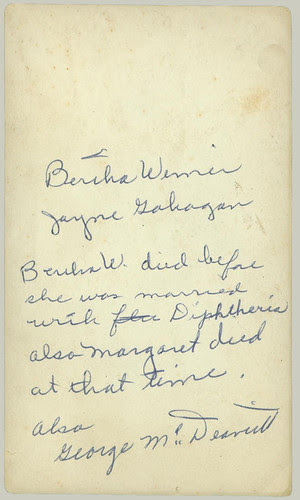 Bertha Werner
Jayne Gahagan
Bertha W. died before
she was married
with flu Diphtheria
also Margaret died
at that time.
also
George Mc Deavitt